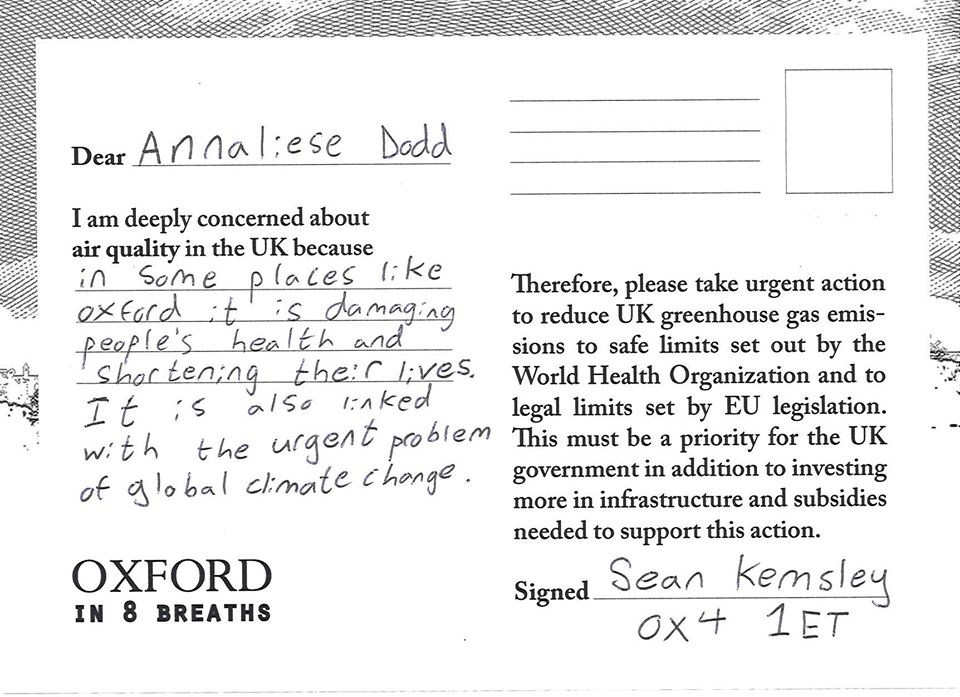 Dear Annaliese Dodd
I am deeply concerned about
air quality in the UK because
in some places like
oxford it is damaging
people's health and
shortening their lives.
It is also linked
with the urgent problem
of global climate change.
OXFORD
IN 8 BREATHS
Therefore, please take urgent action
to reduce UK greenhouse gas emis-
sions to safe limits set out by the
World Health Organization and to
legal limits set by EU legislation.
This must be a priority for the UK
government in addition to investing
more in infrastructure and subsidies
needed to support this action.
Signed Sean Kemsley
OX4 1ET